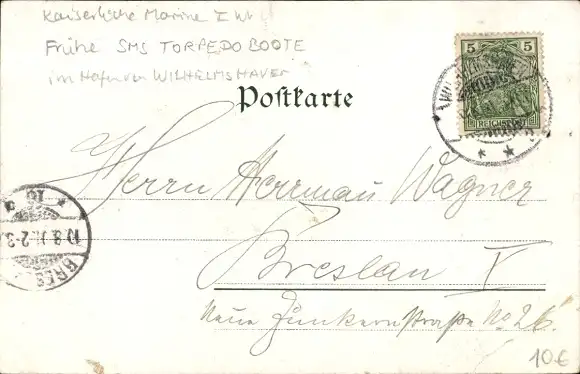 Kaiserliche Marine I WK
Frühe SMS TORPEDOBOOTE
im Hafen von WILHELMSHAVEN
5 5
REICHSPOST
Postkarte
Herrn Herrman Wagner
Breslau V
Neue Junkernstraße No 26
BRES
10.8.
2-3
10€